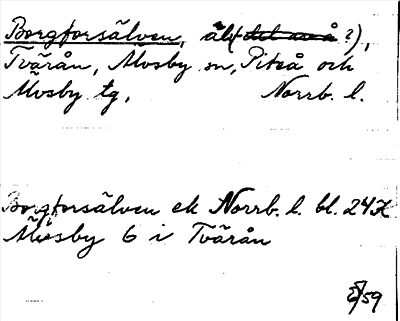 Borgforsälven, älv (det ... å?),
Tvärån, Älvsby sn, Piteå och
Älvsby tg, Norrb. l.
Borgforsälven ek Norrb. l. bl. 24K
Älvsby 6 i Tvärån
/59